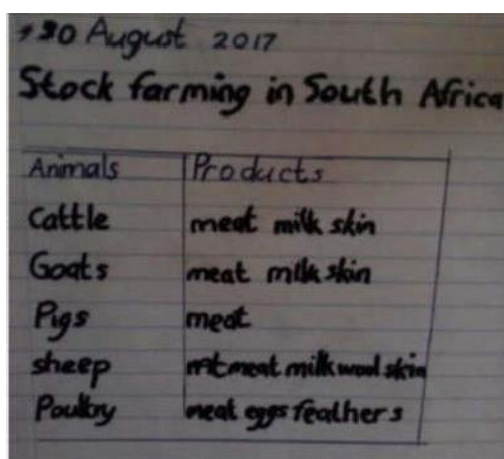 30 August 2017
Stock farming in South Africa
Animals Products
Cattle meat milk skin
Goats meat milk skin
Pigs meat
sheep meat milk wool skin
Poultry meat eggs feathers